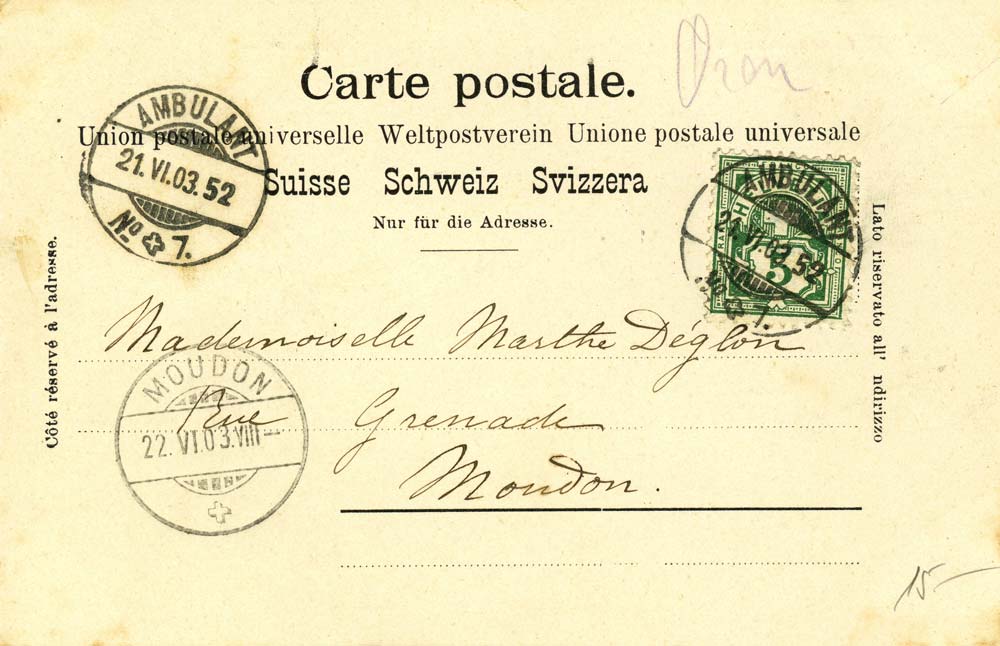 Carte postale.
Oron
Union postale universelle Weltpostverein Unione postale universale
Suisse Schweiz Svizzera
Nur für die Adresse.
AMBULANT
21.VI.03.52
No 7.
AMBULANT
21.VI.03.52
No 7.
5
Côté réservé à l'adresse.
Lato riservato all' ndirizzo
Mademoiselle Marthe Déglon
Rue Grenade
Moudon.
MOUDON
22.VI.03.VIII—
15—